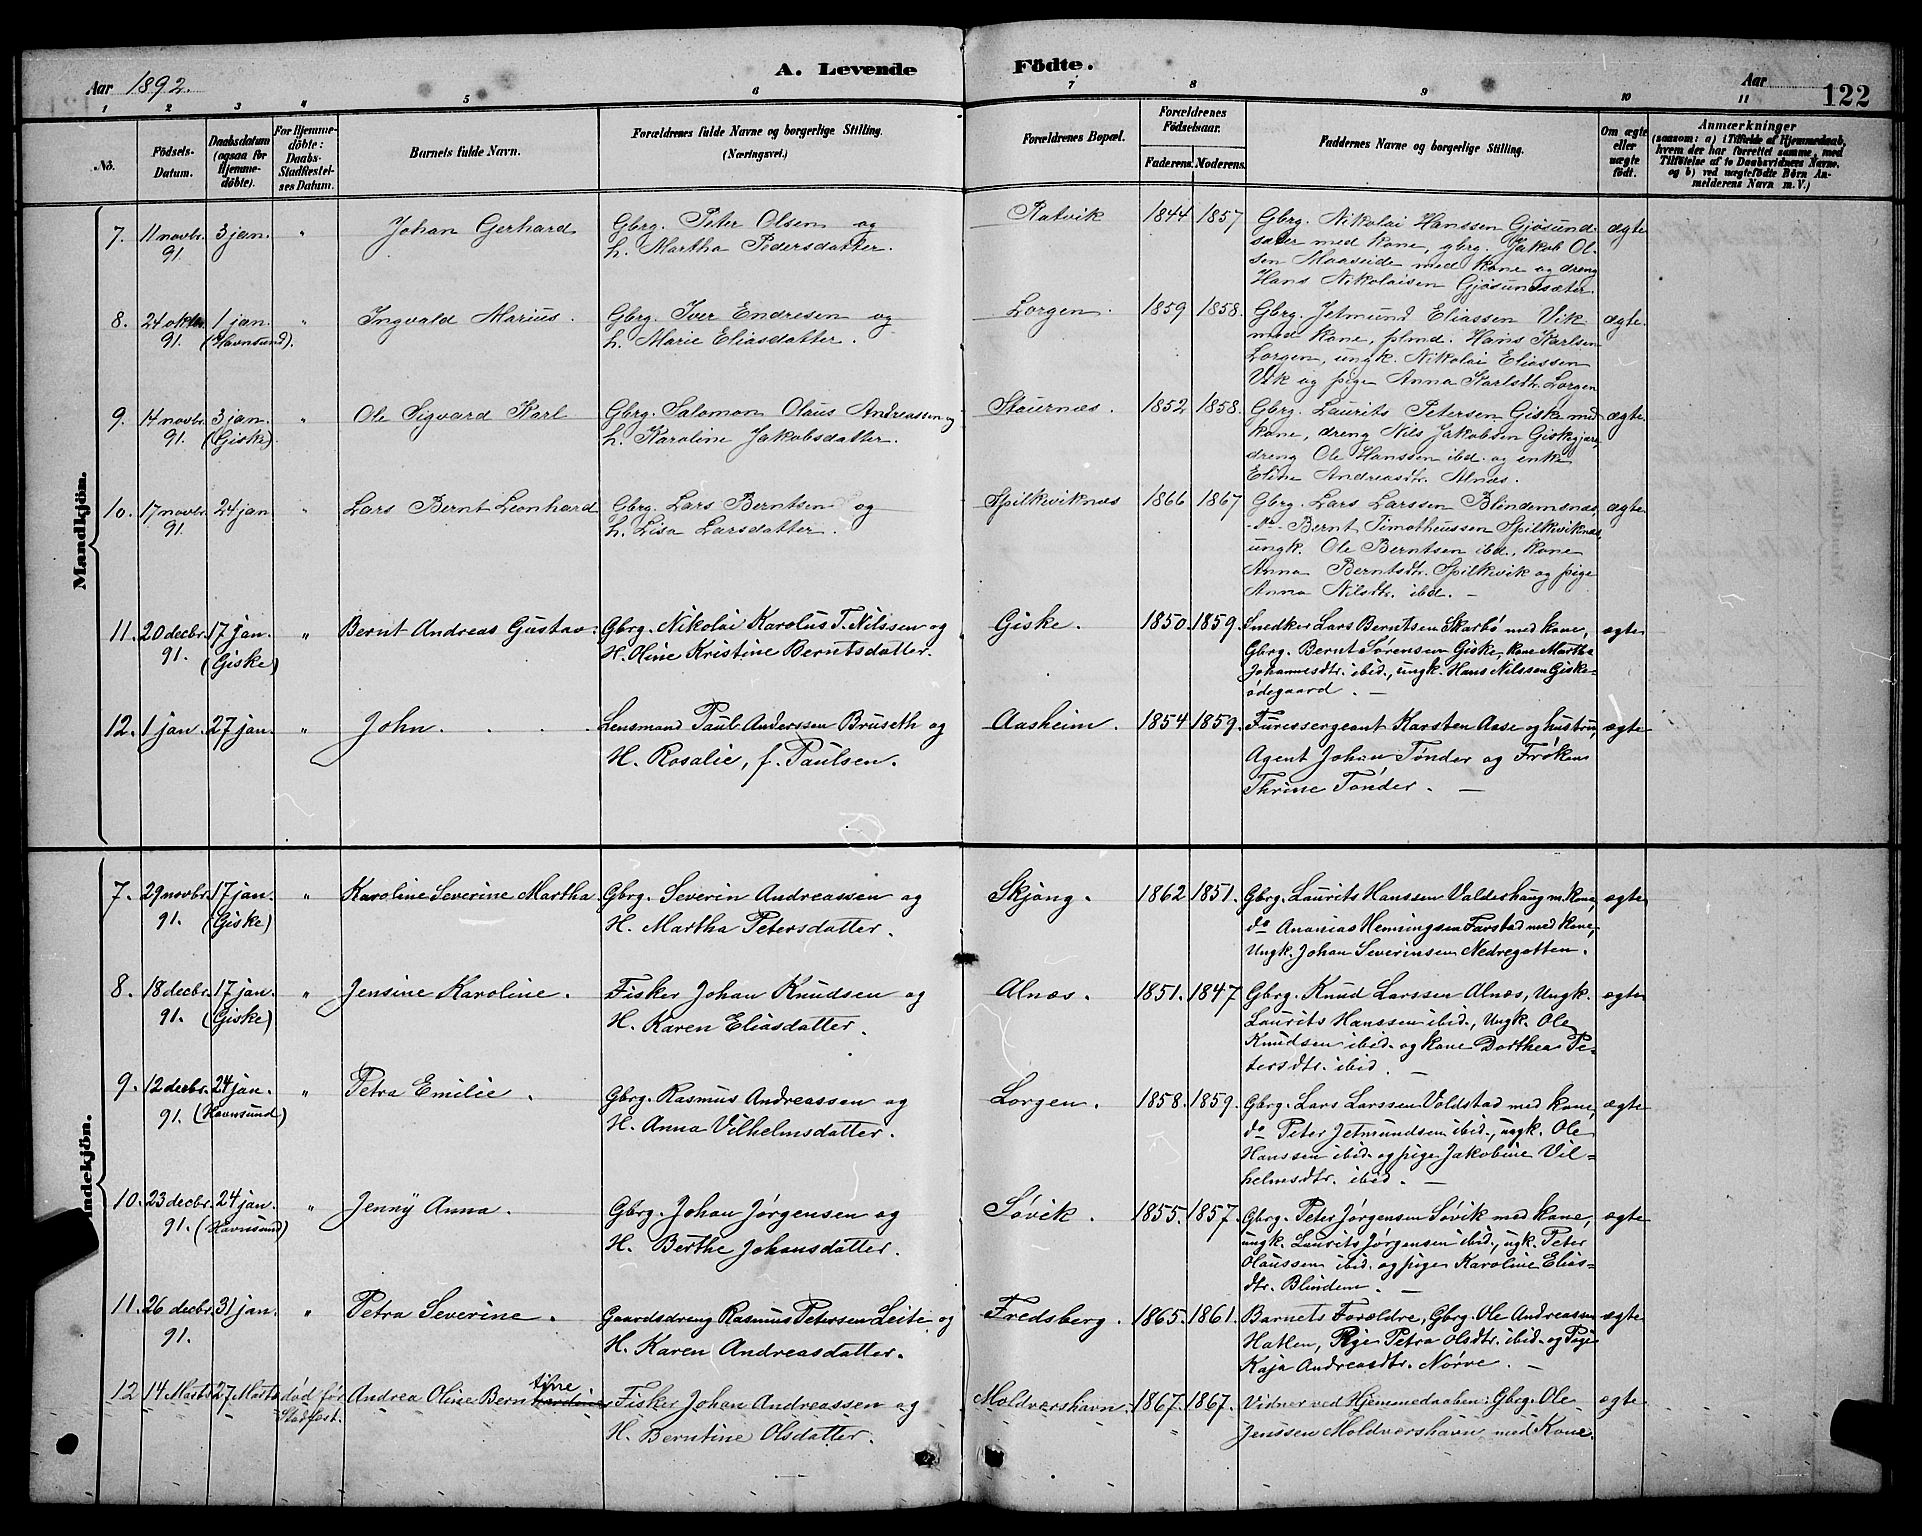 A. Levende Födte.
Aar 1892.
Aar
122
1 2 3 4 5 6 7 8 9 10 11
No.
Födsels-Datum.
Daabsdatum (ogsaa for Hjemmedöbte).
For Hjemmedöbte: Daabs-Stadfestelses Datum.
Barnets fulde Navn.
Forældrenes fulde Navne og borgerlige Stilling.
(Næringsvei.)
Forældrenes Bopæl.
Forældrenes Födselsaar.
Faderens. Moderens.
Faddernes Navne og borgerlige Stilling.
Om ægte eller uægte födt.
Anmærkninger
(saasom: a) i Tilfælde af Hjemmedaab, hvem der har forrettet samme, med Tilföielse af to Daabsvidners Navne, og b) ved uægtefödte Börn Anmelderens Navn m. V.)
Mandkjön.
7. 11 novbr. 91. 3 jan. " Johan Gerhard Gbrg. Peter Olsen og
h. Martha Pedersdatter.
Ratvik 1844 1857 Gbrg. Nikolai Hanssen Gjøsund-
sæter med kone, gbrg. Jakob Ol-
sen Maaseide med kone og dreng
Hans Nikolaisen Gjøsundsæter.
ægte
8. 24 oktbr. 91. 1 jan. (Havnsund). " Ingvald Marius. Gbrg. Iver Endresen og
h. Marie Eliasdatter.
Lorgen. 1859 1858. Gbrg. Jetmund Eliassen Vik
med kone, plmd. Hans Karlsen
Lorgen, ungk. Nikolai Eliassen
Vik og pige Anna Karlsdtr. Lorgen
ægte.
9. 14 novbr. 91. 3 jan. (Giske). " Ole Sigvard Karl Gbrg. Salomon Olaus Andreassen og
h. Karoline Jakobsdatter.
Staurnæs. 1852 1858. Gbrg. Laurits Petersen Giske med
kone, dreng Nils Jakobsen Giskegjære
dreng Ole Hanssen ibd. og enke
Eline Andreasdtr. Alnæs.
ægte.
10. 17 novbr. 91. 24 jan " Lars Bernt Leonhard Gbrg. Lars Berntsen og
h. Lisa Larsdatter.
Spilkeviknæs 1866 1867 Gbrg. Lars Larssen Blindemsnæs,
-do- Bernt Timotheussen Spilkeviknæs,
ungk. Ole Berntsen ibd., kone
Anna Berntsdtr. Spilkevik og pige
Anna Nilsdtr. ibd. —
ægte.
11. 20 decbr. 91. 17 jan. (Giske) " Bernt Andreas Gustav. Gbrg. Nikolai Karolus T. Nilssen og
H. Oline Kristine Berntsdatter.
Giske. 1850. 1859. Snedker Lars Berntsen Skarbø med kone,
Gbrg. Bernt Sørensen Giske, kone Martha
Johannesdtr. ibid., ungk. Hans Nilssen Giske-
ødegaard. —
ægte
12. 1 jan. 27 jan. " John. Lensmand Paul Anderssen Bruseth og
H. Rosalie, f. Paulsen.
Aasheim. 1854 1859. Furessergeant Karsten Aase og hustru,
Agent Johan Tønder og Frøken
Thrine Tønder. —
ægte
Kvindekjön.
7. 29 novbr. 91. 17 jan. (Giske) " Karoline Severine Martha. Gbrg. Severin Andreassen og
H. Martha Petersdatter.
Skjong. 1862 1851. Gbrg. Laurits Hanssen Valdeshaug m. kone,
do Ananias Hemingsen Farstad med kone,
Ungk. Johan Severinsen Nedregotten.
ægte
8. 18 decbr. 91. 17 jan. (Giske) " Jensine Karoline. Fisker Johan Knudsen og
H. Karen Eliasdatter.
Alnæs. 1851. 1847 Gbrg. Knud Larssen Alnæs, Ungk.
Laurits Hanssen ibid., Ungk. Ole
Knudsen ibid. og kone Dorthea Pe-
tersdtr. ibid. —
ægte
9. 12 decbr. 91. 24 jan. (Havnsund) " Petra Emilie. Gbrg. Rasmus Andreassen og
H. Anna Vilhelmsdatter.
Lorgen. 1858. 1859. Gbrg. Lars Larssen Voldstad med kone,
do Peter Jetmundsen ibid., ungk. Ole
Hanssen ibid. og pige Jakobine Vil-
helmsdtr. ibid. —
ægte
10. 23 decbr. 91. 24 jan. (Havnsund) " Jenny Anna. Gbrg. Johan Jørgensen og
H. Berthe Johansdatter.
Søvik. 1855. 1857. Gbrg. Peter Jørgensen Søvik med kone,
ungk. Laurits Jørgensen ibid., ugk. Peter
Olaussen ibid. og pige Karoline Elias-
dtr. Blindem. —
ægte
11. 26 decbr. 91. 31 jan. " Petra Severine. Gaardsdreng Rasmus Petersen Leite og
H. Karen Andreasdatter.
Fredsberg. 1865. 1861. Barnets Forældre, Gbrg. Ole Andreassen
Hatlen, Pige Petra Olsdtr. ibid. og Pige
Kaja Andreasdtr. Nørve. —
ægte
12 14 Marts 27 Marts død før Stadfest. Andrea Oline Berntine Fisker Johan Andreassen og
H. Berntine Olsdatter.
Moldvershavn. 1867. 1867. Vidner ved Hjemmedaaben: Gbrg. Ole
Jenssen Moldvershavn med Kone.
ægte